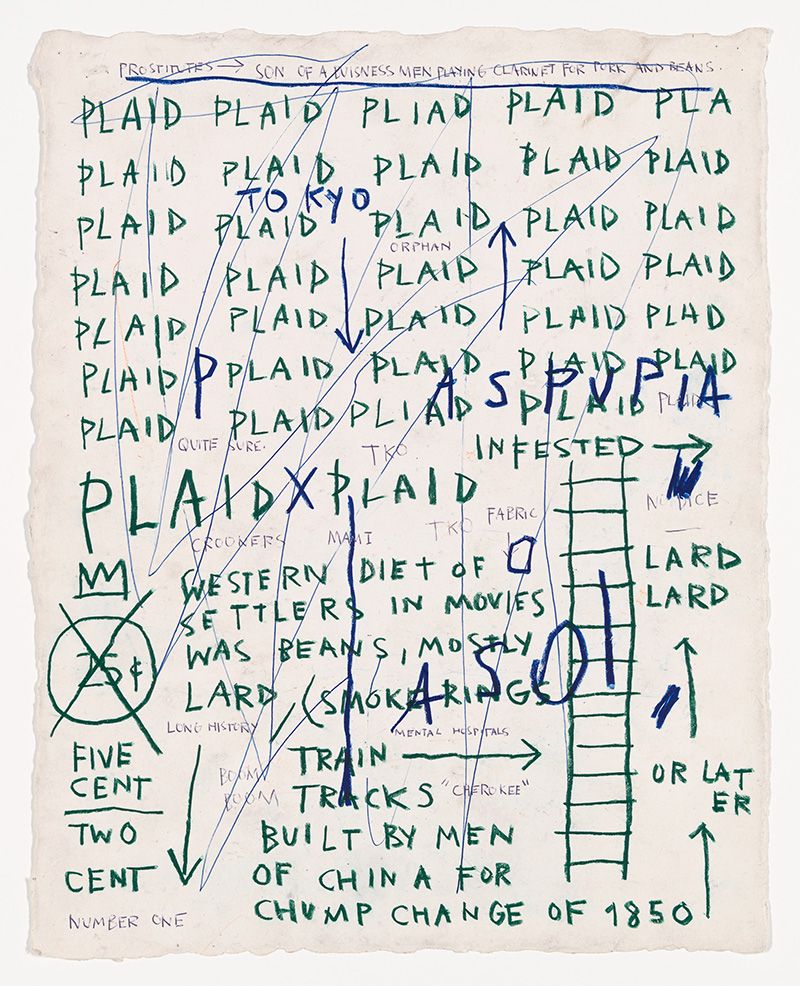 PROSTITUTES → SON OF A BUISNESS MEN PLAYING CLARINET FOR PORK AND BEANS.
PLAID PLAID PLIAD PLAID PLA
PLAID PLAID PLAID PLAID PLAID
TOKYO
PLAID PLAID PLAID PLAID PLAID
ORPHAN
PLAID PLAID PLAID PLAID PLAID
PLAID PLAID PLAID PLAID PLAD
PLAID P PLAID PLAID PLAID PLAID
A S P V P I A
PLAID PLAID PLIAD PLAID PLAID
QUITE SURE. TKO INFESTED →
PLAID X PLAID
NO DICE
CROONERS MAMI TKO FABRIC
WESTERN DIET OF
SETTLERS IN MOVIES
WAS BEANS, MOSTLY
LARD (SMOKE RINGS
LARD
LARD
25¢
A S O
LONG HISTORY
MENTAL HOSPITALS
FIVE
CENT
TWO
CENT
NUMBER ONE
BOOM
BOOM
TRAIN →
TRACKS "CHEROKEE"
BUILT BY MEN
OF CHINA FOR
CHUMP CHANGE OF 1850
OR LAT
ER